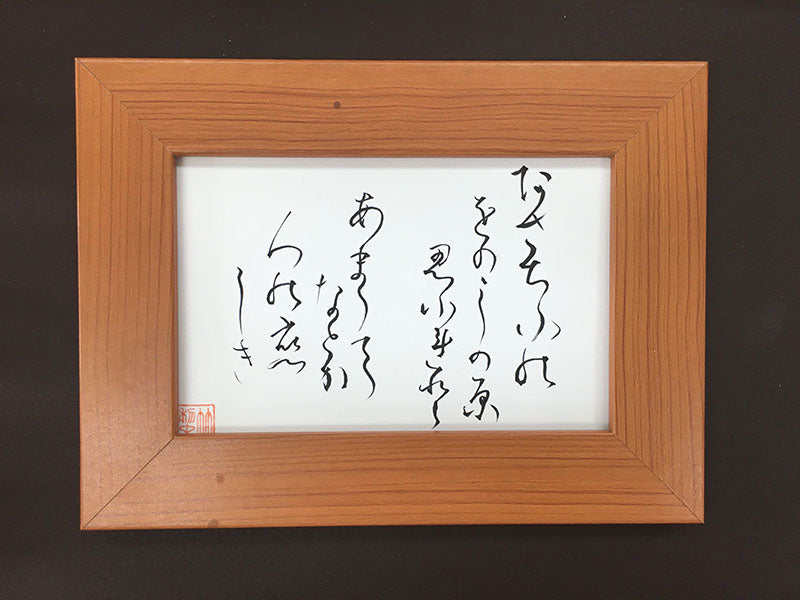 阿さちふ能
をのゝしの原
忍ふれと
あまりて
なとか
人能恋
しき